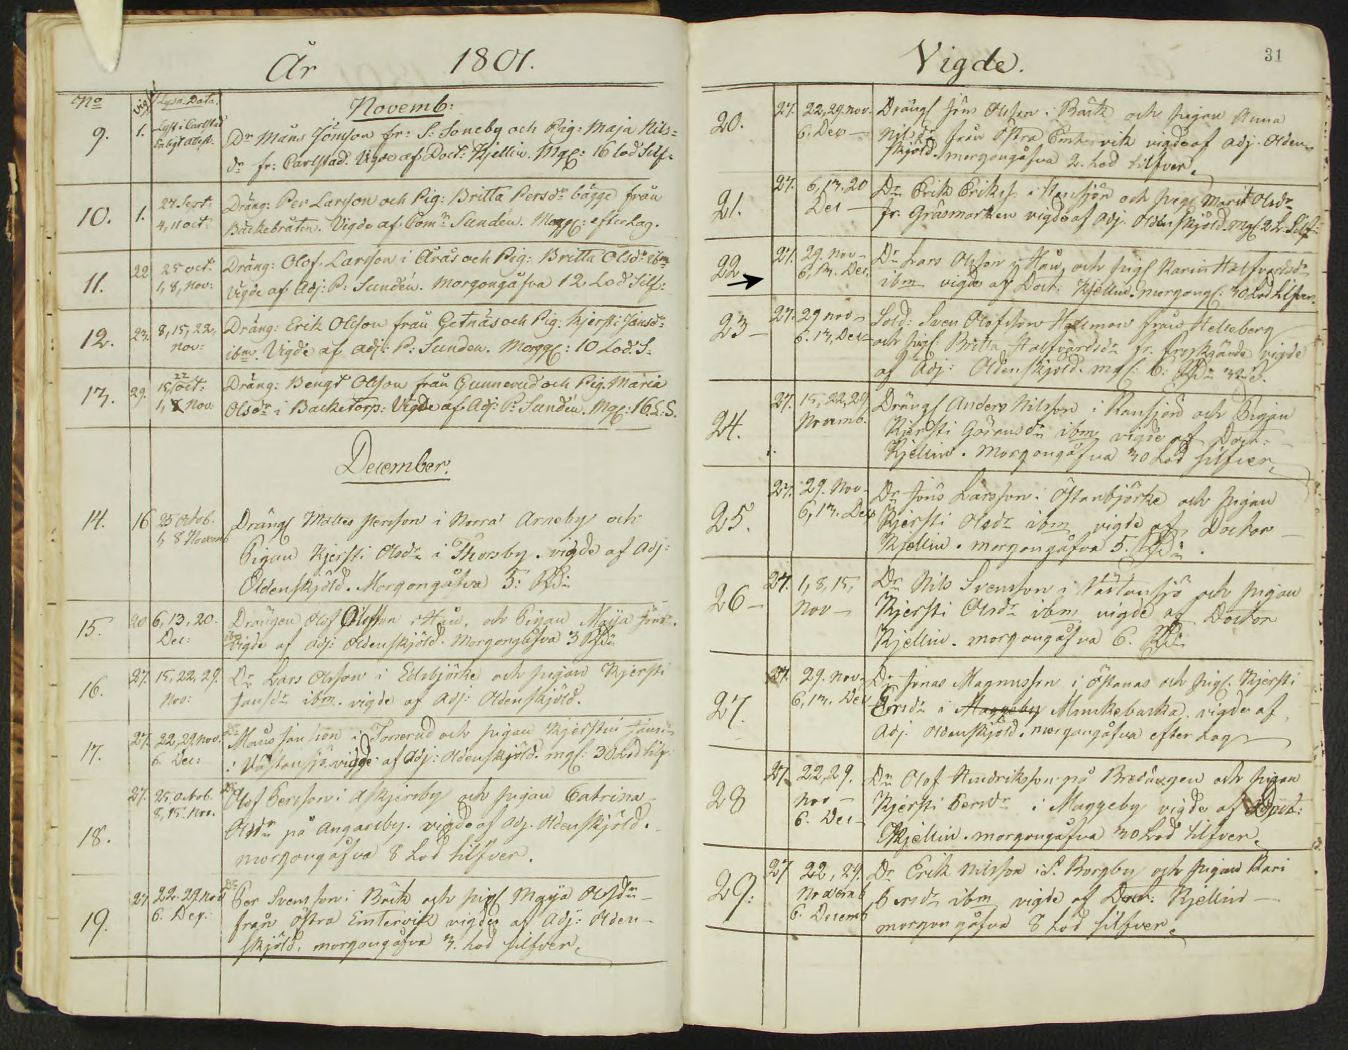 År 1801.
No Vigs. Lysn. Data.
Novemb:
9. 1. Lyst i Carlstad Enligt attest.
Dr Måns Jönson fr: S: Soneby och Pig: Maja Nils=
dr fr: Carlstad. Vigde af Doct: Kjellin. Mgf: 16 lod Silf:
10. 1. 27 Sept: 4, 11 oct:
Dräng: Per Larsson och Pig: Britta Persdr bägge från
Backebråten. Vigde af Com: Sundén. Morgg: efter Lag.
11. 22 25 oct: 1, 8, Nov:
Dräng: Olof Larsson i Årås och Pig: Britta Olsdr ibm
Vigde af Adj: P: Sundén. Morgongåfva 12 Lod Silf:
12. 23. 8, 15, 22, nov:
Dräng: Erik Olsson från Getnäs och Pig: Kjersti Jansdr
ibm. Vigde af adj: P: Sundén. Morgg: 10 Lod S.
13. 29. 15, 22 oct: 1, Nov:
Dräng: Bengt Olsson från Gunnerud och Pig. Maria
Olsdr i Backetorp: Vigde af Adj: P: Sundén. Mgf: 16 L. S.
December.
14. 16 25 octob. 1, 8 Novemb
Drängn Mattes Persson i Norra Arneby och
Pigan Kjersti Olsdr i Thorsby. vigde af Adj:
Oldenskjöld. Morgongåfva 5: Rdr
15. 20 6, 13, 20. Dec:
Drängen Olof Olofsson i Hån, och Pigan Maija Jönsd.
ibm. Vigde af adj: Oldenskjöld. Morgongåfva 3 Rdr
16. 27. 15, 22, 29. Nov:
Dr Lars Olsson i Edsbjörke och pigan Kjersti
Jansdr ibm. vigde af Adj: Oldenskjöld.
17. 27. 22, 29 nov. 6 Dec:
Dr Måns Jansson i Torserud och pigan Kjerstin Jans=
i Västansjö vigde af Adj: Oldenskjöld. mgf: 30 Lod Silf
18. 27. 25 octob. 8, 15. Nov.
Dr Olof Persson i Askjersby och pigan Catrina
Olsdr på Angersby. vigde af Adj. Oldenskjöld.
morgongåfva 8 Lod silfver.
19. 27 22. 29. nov 6. Dec:
Dr Per Svensson i Bråth och pigf Maija Olofsdr
från östra Emtervik vigde af Adj: Olden-
skjöld. morgongåfva 3. Lod silfver.
Vigde. 31
20. 27. 22, 29. nov. 6. Dec
Drängf Jöns Olsson i Bråth och pigan Anna
Nilsdr från östra Emtervik vigde af adj. Olden
skjöld. morgongåfva 2. Lod silfver.
21. 27. 6, 13, 20 Dec
Dr Erik Eriksf i Ransjön och pigf Marit Olsdr
fr. Gräsmarken vigde af Adj: Oldenskjöld. mgf. 2 L. Silf:
22 27. 29. nov 6, 13. Dec.
Dr Lars Olsson i Hån, och pigf Karin Halfvardsdr
ibm vigde af Doct: Kjellin. morgong: 30 Lod silfver
23 27. 29 nov 6. 13, Dec
Sold: Sven Olofsson Hultman från Helleberg
och pigf Britta Halfvardsdr fr. vigde
af Adj: Oldenskjöld. mgf: 6: Rdr 32 s.
24. 27. 15, 22, 29 Novemb.
Drängf Anders Nilsson i Ransjön och Pigan
Kjersti Göransdr ibm vigde af Doct:
Kjellin. Morgongåfva 30 Lod silfver.
25. 27. 29. Nov 6, 13. Dec
Dr Jöns Larsson i Östanbjörke och pigan
Kjersti Olsdr ibm vigde af Doctor
Kjellin. morgongåfva 5. Rdr.
26 27. 1, 8, 15, Nov
Dr Nils Svensson i Västansjö och pigan
Kjersti Olsdr ibm vigde af Doctor
Kjellin. morgongåfva 6. Rdr
27 27. 29. nov. 6, 13. Dec
Dr Jonas Magnusson i Östanås och pigf. Kjersti
Ersdr i Maggeby Munkebacka. vigde af
Adj. Oldenskjöld. morgongåfva efter Lag
28 27 22, 29. Nov 6. Dec
Dr Olof Hindriksson på Bredängen och pigan
Kjersti Persdr i Maggeby vigde af Doct:
Kjellin. morgongåfva 30 Lod silfver.
29: 27 22, 29. Novemb 6. Decemb
Dr Erik Nilsson i S. Borgeby och pigan Kari
Persdr ibm vigde af Doct: Kjellin
morgongåfva 8 Lod silfver.